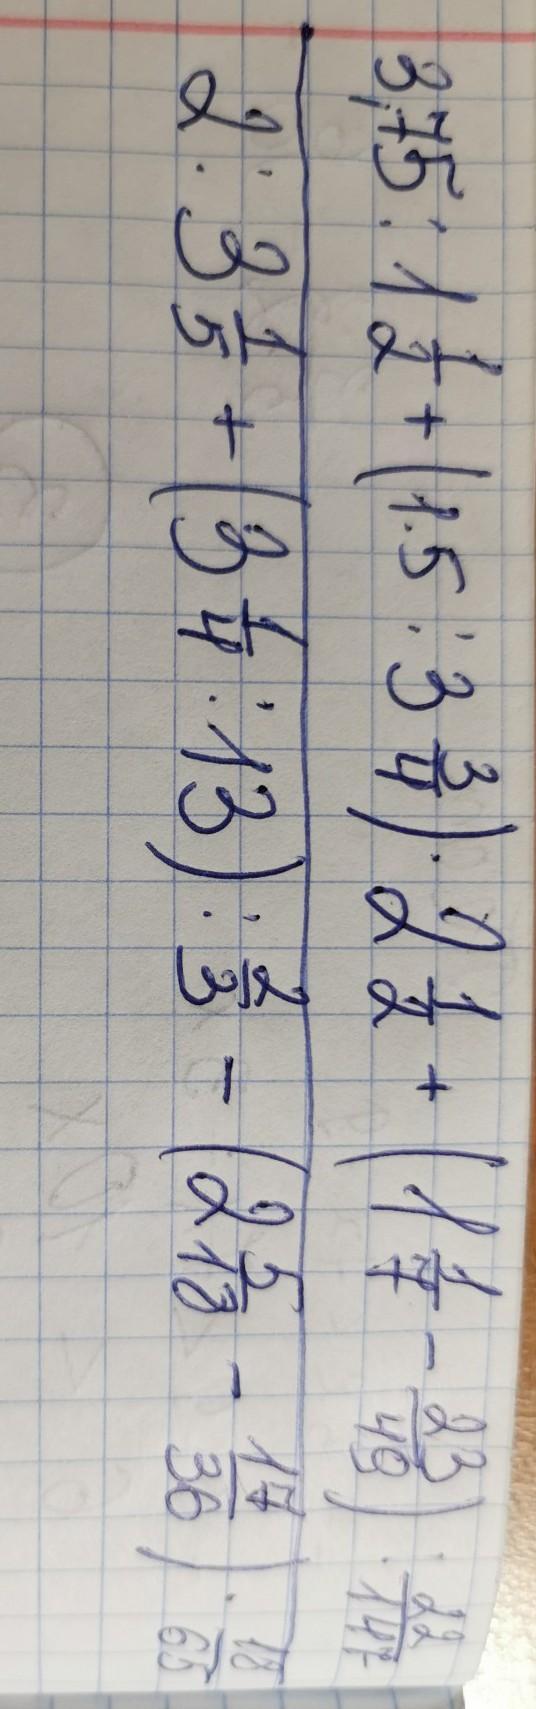 3,75 : 1 1/2 + (1.5 : 3 3/4) · 2 1/2 + (1 1/7 - 23/49) : 22/147
2 : 3 1/5 + (3 1/4 : 13) : 2/3 - (2 5/13 - 17/36) · 18/65